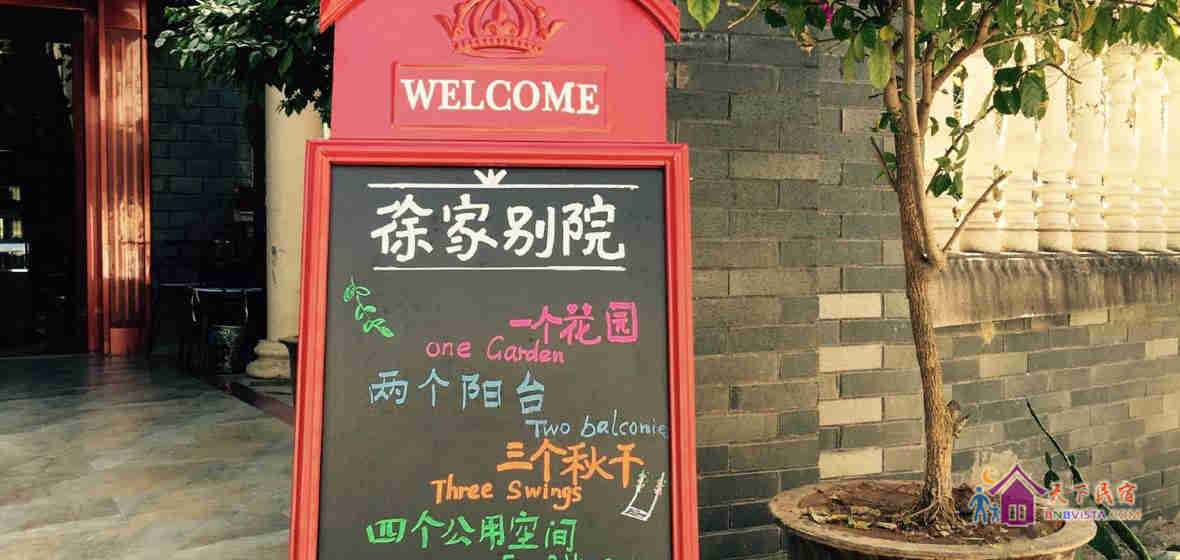 WELCOME
徐家别院
一个花园
one Garden
两个阳台
Two balconie
三个秋千
Three Swings
四个公用空间
天下民宿
BNBVISTA.COM